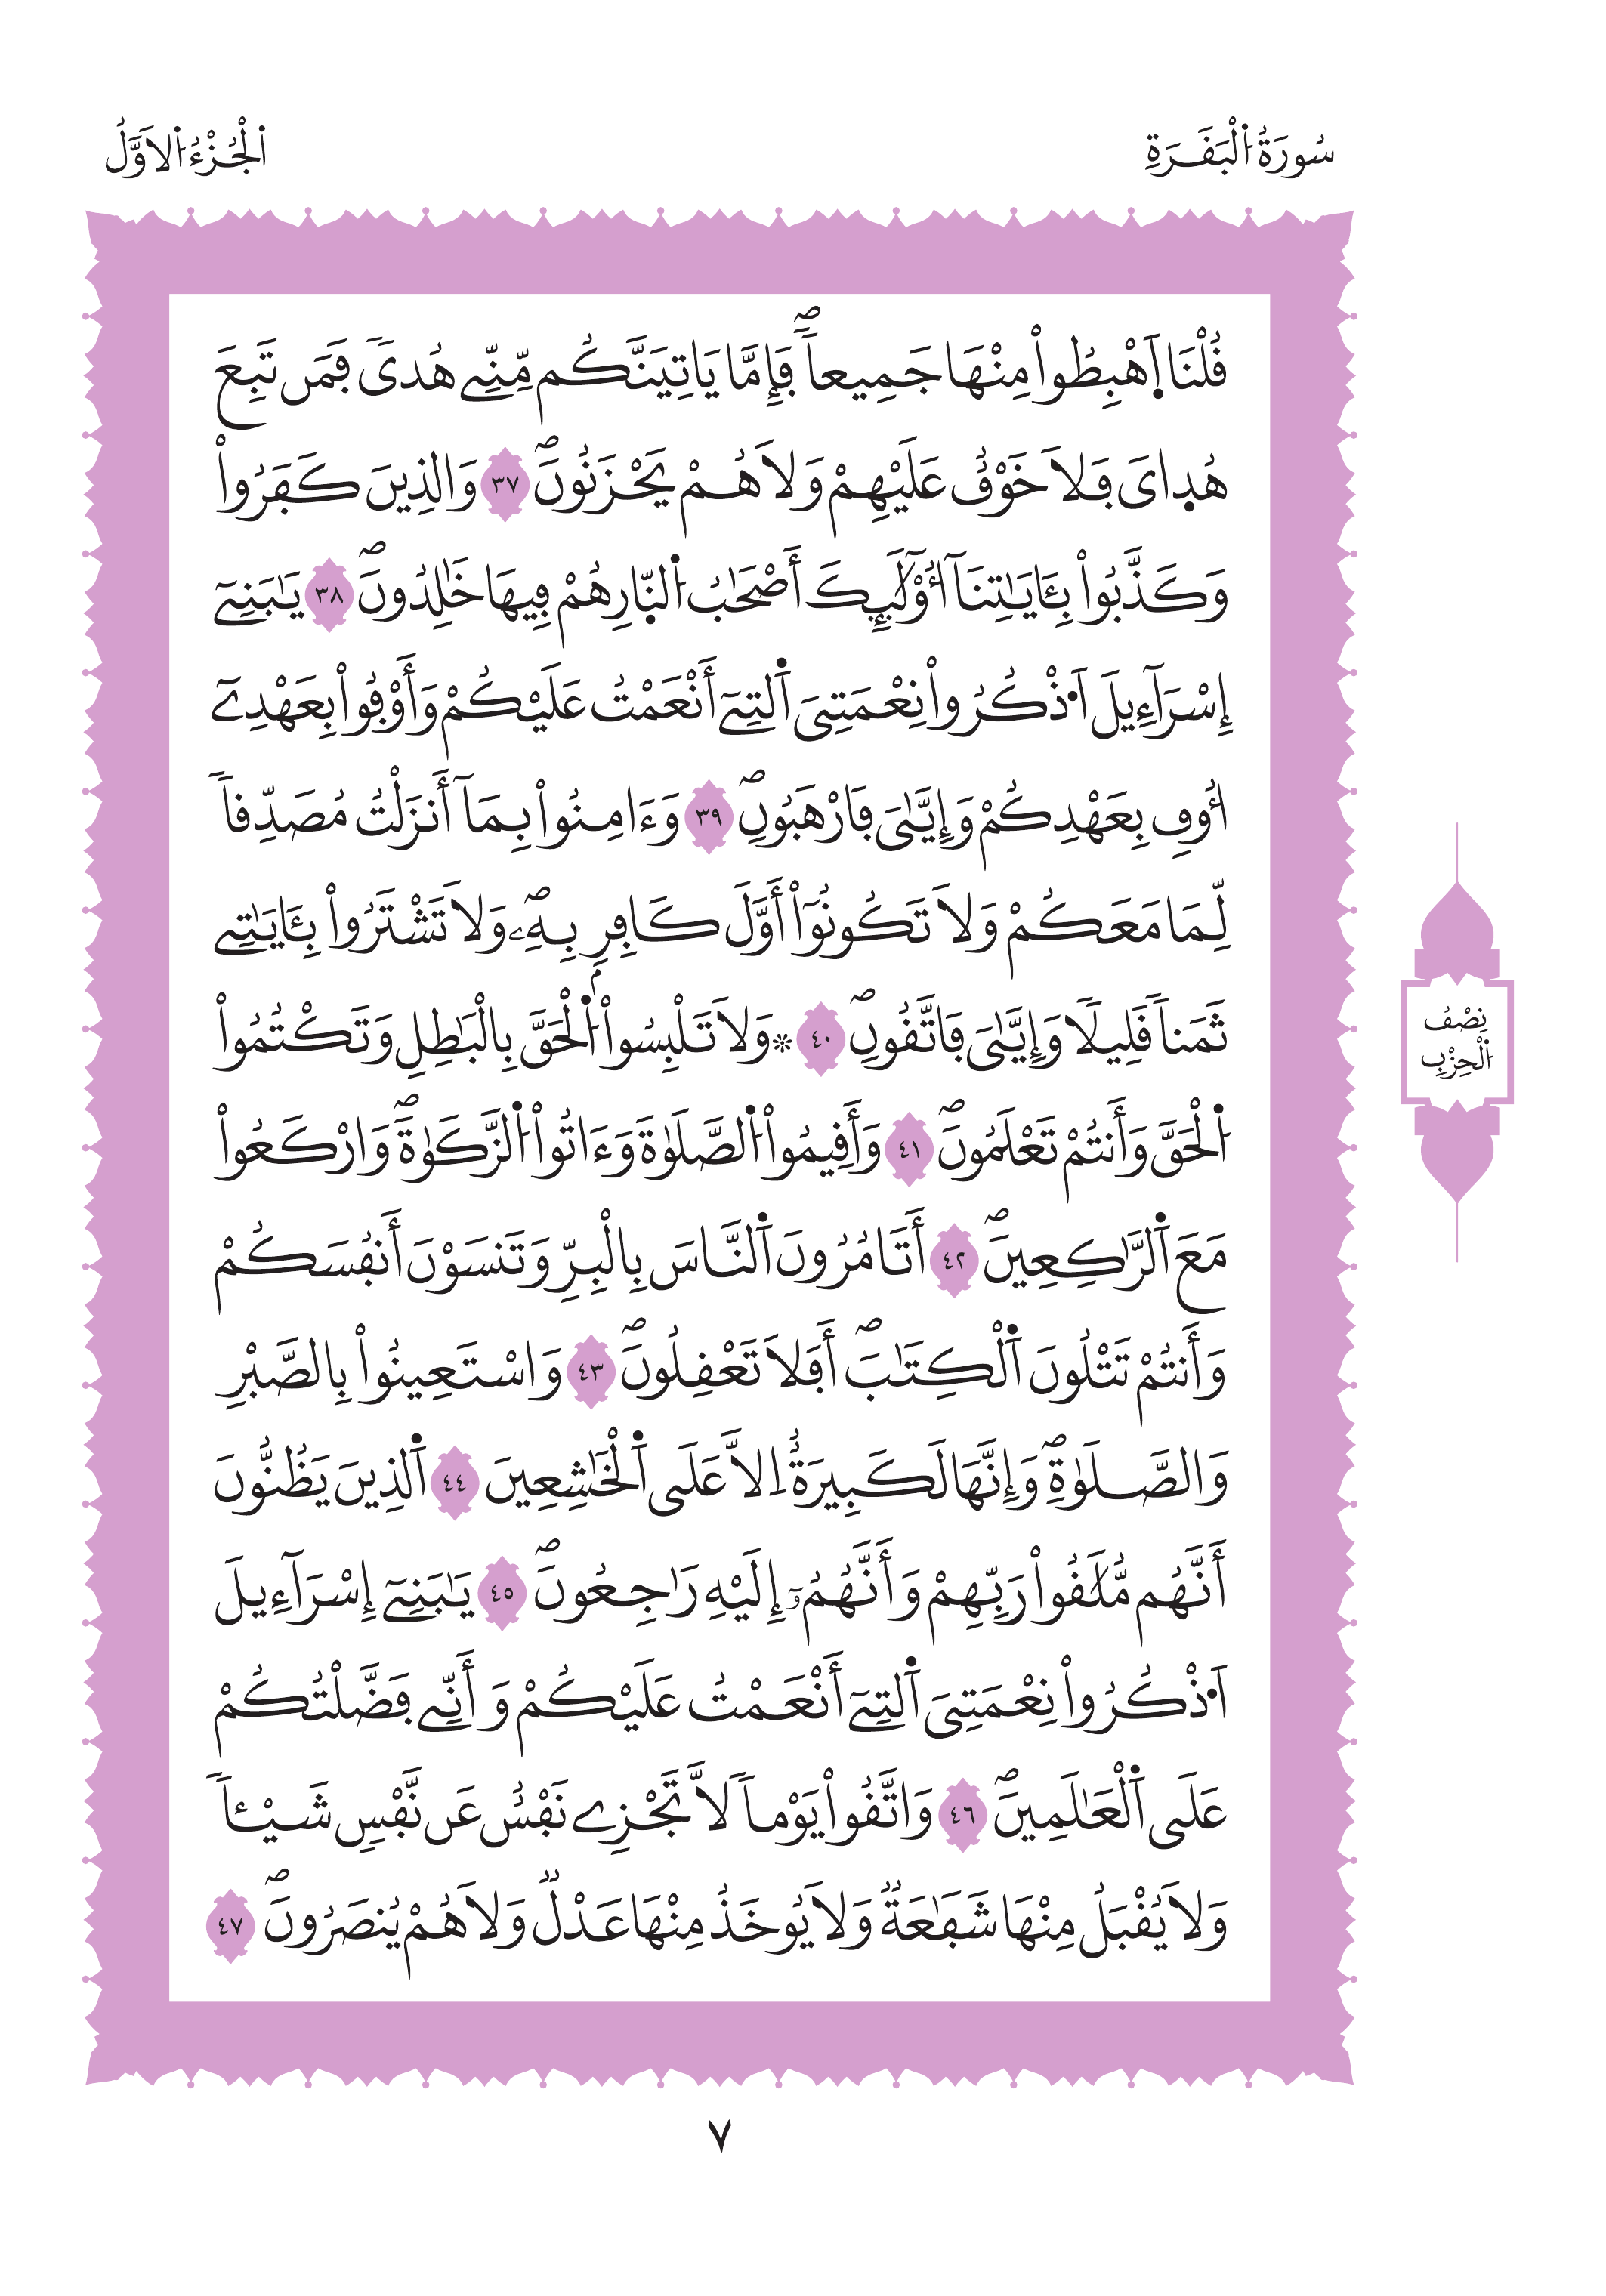 سُورَةُ اُ۬لْبَقَرَةِ
اَ۬لْجُزْءُ اُ۬لَاوَّلُ
قُلْنَا اَ۪هْبِطُواْ مِنْهَا جَمِيعاٗۖ فَإِمَّا يَاتِيَنَّكُم مِّنِّے هُديٗ فَمَن تَبِعَ
هُد۪ايَ فَلَا خَوْفٌ عَلَيْهِمْ وَلَا هُمْ يَحْزَنُونَۖ ٣٧ وَالذِينَ كَفَرُواْ
وَكَذَّبُواْ بِـَٔايَٰتِنَآ أُوْلَٰٓئِكَ أَصْحَٰبُ اُ۬لنّ۪ارِ هُمْ فِيهَا خَٰلِدُونَۖ ٣٨ يَٰبَنِےٓ
إِسْرَآءِيلَ اَ۟ذْكُرُواْ نِعْمَتِيَ اَ۬لتِےٓ أَنْعَمْتُ عَلَيْكُمْ وَأَوْفُواْ بِعَهْدِےٓ
أُوفِ بِعَهْدِكُمْ وَإِيَّٰيَ فَارْهَبُونِۖ ٣٩ وَءَامِنُواْ بِمَآ أَنزَلْتُ مُصَدِّقاٗ
لِّمَا مَعَكُمْ وَلَا تَكُونُوٓاْ أَوَّلَ كَافِرِۢ بِهِۦۖ وَلَا تَشْتَرُواْ بِـَٔايَٰتِے
ثَمَناٗ قَلِيلًا وَإِيَّٰيَ فَاتَّقُونِۖ ٤٠ ۞ وَلَا تَلْبِسُواْ اُ۬لْحَقَّ بِالْبَٰطِلِ وَتَكْتُمُواْ
اُ۬لْحَقَّ وَأَنتُمْ تَعْلَمُونَۖ ٤١ وَأَقِيمُواْ اُ۬لصَّلَوٰةَ وَءَاتُواْ اُ۬لزَّكَوٰةَۖ وَارْكَعُواْ
مَعَ اَ۬لرَّٰكِعِينَۖ ٤٢ أَتَامُرُونَ اَ۬لنَّاسَ بِالْبِرِّ وَتَنسَوْنَ أَنفُسَكُمْ
وَأَنتُمْ تَتْلُونَ اَ۬لْكِتَٰبَۖ أَفَلَا تَعْقِلُونَۖ ٤٣ وَاسْتَعِينُواْ بِالصَّبْرِ
وَالصَّلَوٰةِۖ وَإِنَّهَا لَكَبِيرَةٌ اِلَّا عَلَي اَ۬لْخَٰشِعِينَ ٤٤ اَ۬لذِينَ يَظُنُّونَ
أَنَّهُم مُّلَٰقُواْ رَبِّهِمْ وَأَنَّهُمُۥٓ إِلَيْهِ رَٰجِعُونَۖ ٤٥ يَٰبَنِےٓ إِسْرَآءِيلَ
اَ۟ذْكُرُواْ نِعْمَتِيَ اَ۬لتِےٓ أَنْعَمْتُ عَلَيْكُمْ وَأَنِّے فَضَّلْتُكُمْ
عَلَي اَ۬لْعَٰلَمِينَۖ ٤٦ وَاتَّقُواْ يَوْماٗ لَّا تَجْزِے نَفْسٌ عَن نَّفْسٖ شَيْـٔاٗ
وَلَا يُقْبَلُ مِنْهَا شَفَٰعَةٞ وَلَا يُوخَذُ مِنْهَا عَدْلٞ وَلَا هُمْ يُنصَرُونَۖ ٤٧
نِصْفُ
اُ۬لْحِزْبِ
٧